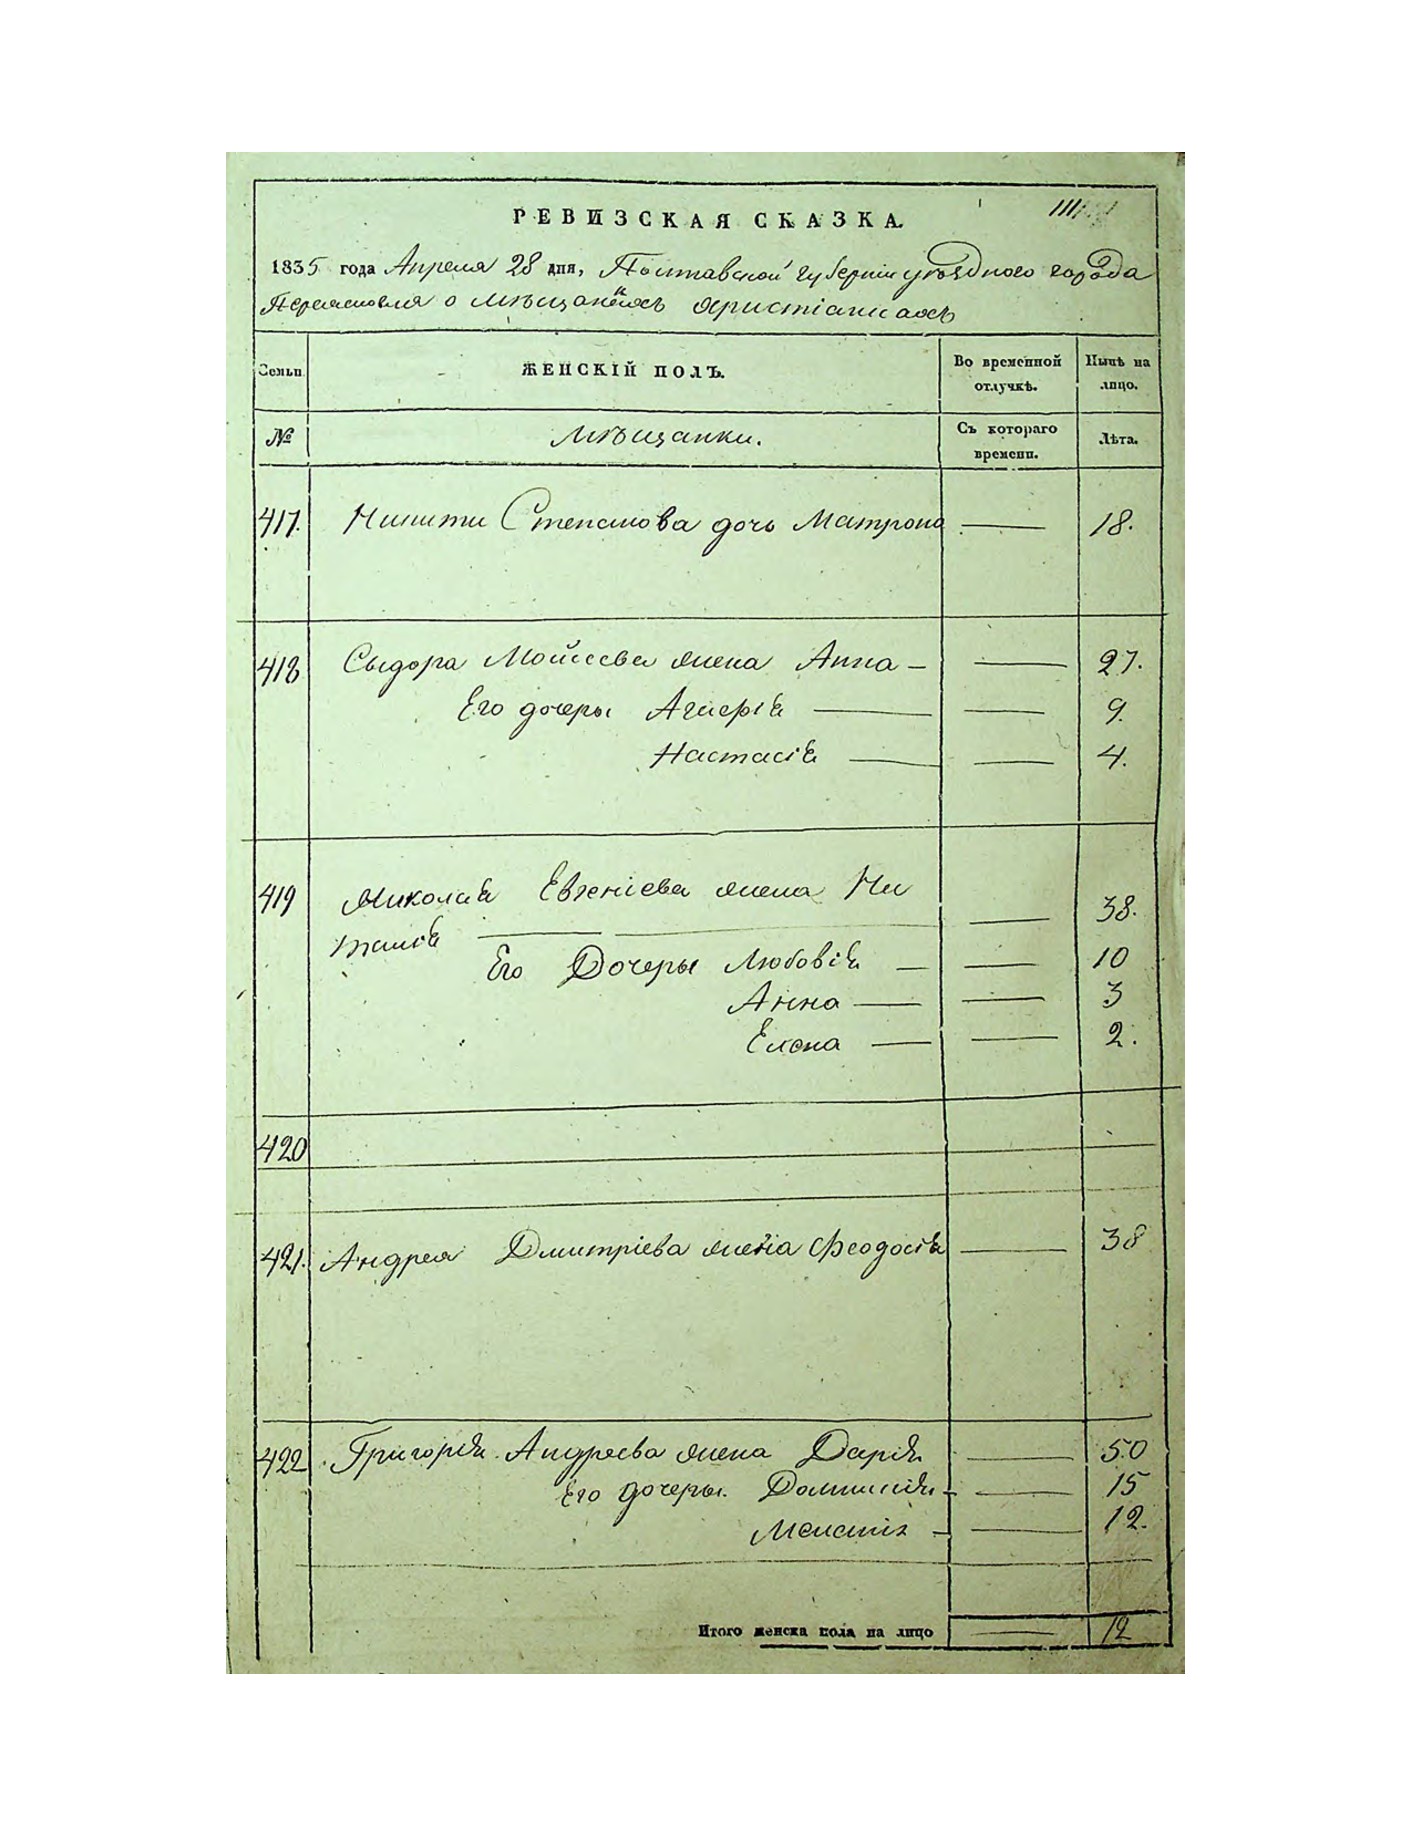 РЕВИЗСКАЯ СКАЗКА.
1835 года Апреля 28 дня, Полтавской губернии уѣздного города
Переяславля о мѣщанкахъ христианкахъ
Семьи
ЖЕНСКІЙ ПОЛЪ.
Во временной отлучкѣ.
Нынѣ на лицо.
№
Мѣщанки.
Съ котораго времени.
Лѣта.
417. Никиты Степанова дочь Матрона — 18.
418 Сыдора Мойсеева жена Анна — — 27.
Его дочеры Агафія — — 9.
Настасія — — 4.
419 Николая Евгеніева жена На
талія — — 38.
Его Дочеры Любовія — — 10
Анна — — 3
Елена — — 2.
420
421. Андрея Дмитріева жена Феодосія — 38
422 Григорія Андреева жена Дарія — 50
Его дочеры. — — 15
— — 12.
Итого женска пола на лицо — 12